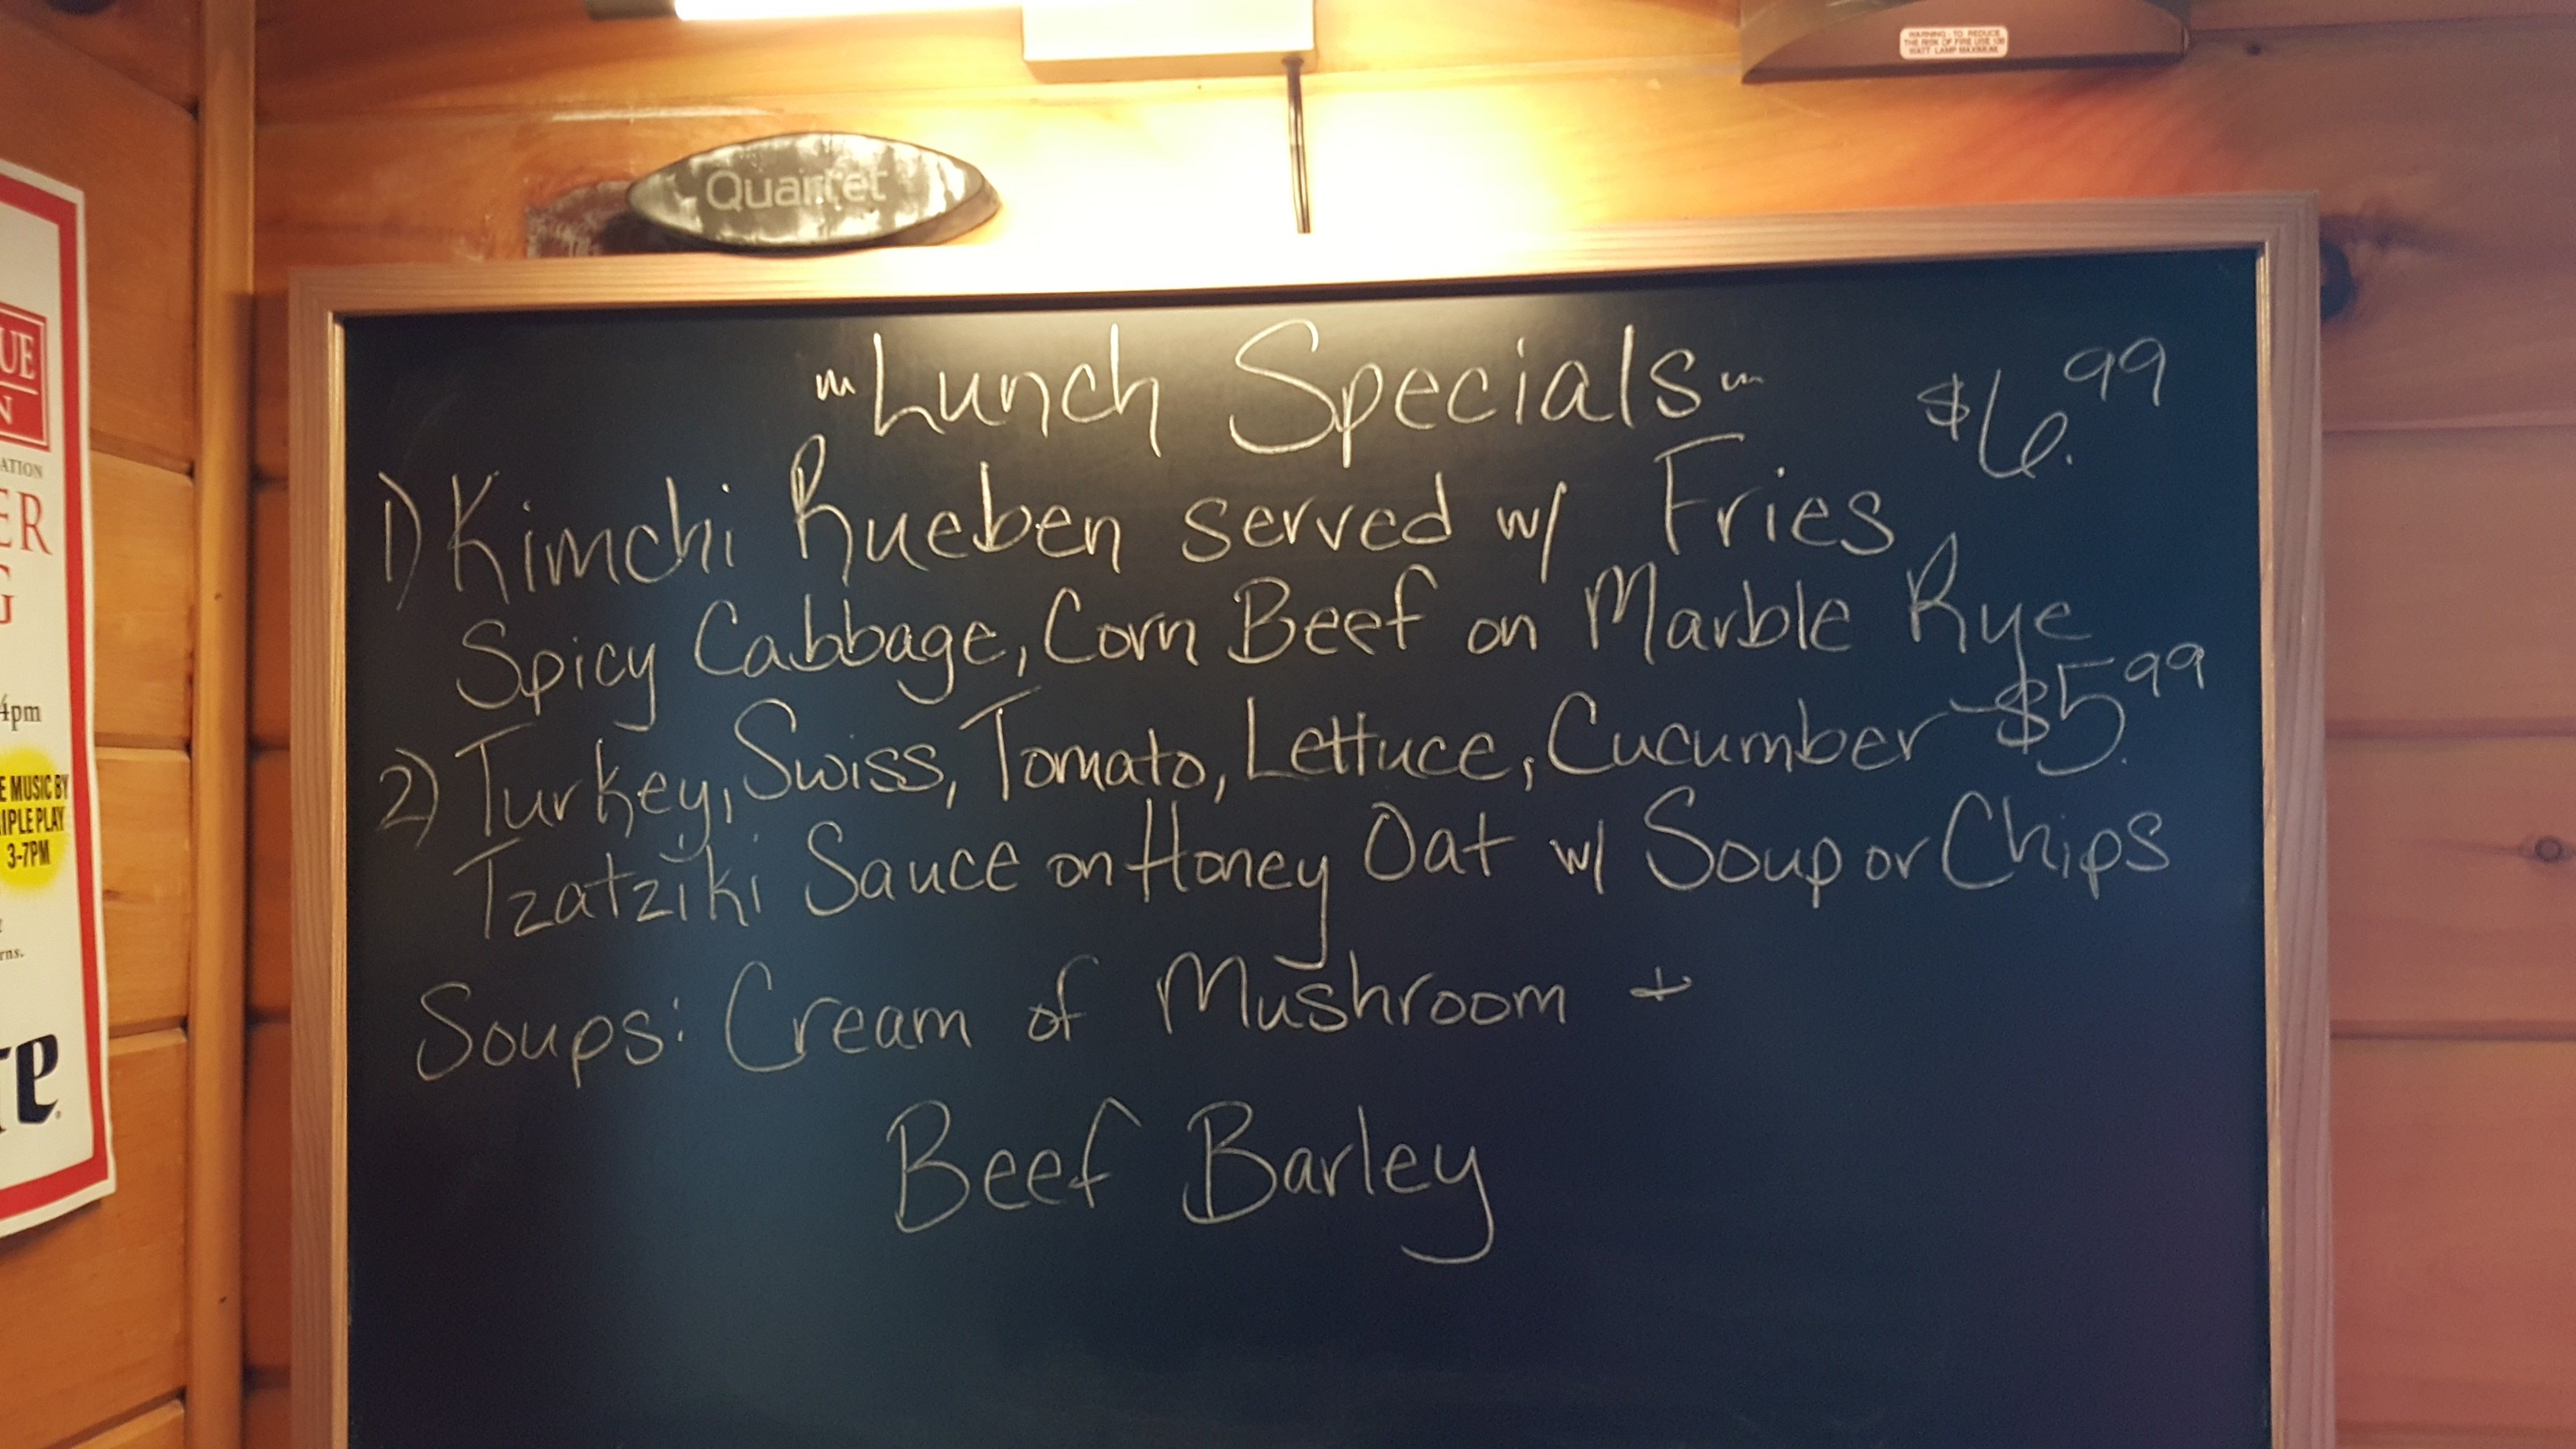 WARNING - TO REDUCE
THE RISK OF FIRE USE 100
WATT LAMP MAXIMUM.
Quartet
Lunch Specials
$6.99
1) Kimchi Rueben served w/ Fries
Spicy Cabbage, Corn Beef on Marble Rye
2) Turkey, Swiss, Tomato, Lettuce, Cucumber - $5.99
Tzatziki Sauce on Honey Oat w/ Soup or Chips
Soups: Cream of Mushroom +
Beef Barley
UE
N
ATION
ER
G
4pm
E MUSIC BY
IPLE PLAY
3-7PM
rns.